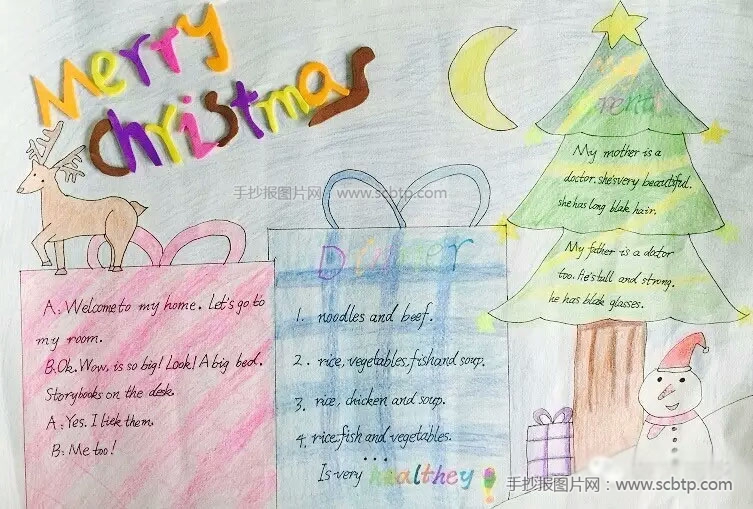 Merry
christmas
手抄报图片网：www.scbtp.com
A: Welcome to my home. Let's go to
my room.
B: Ok. Wow, is so big! Look! A big bed.
Storybooks on the desk.
A: Yes. I liek them.
B: Me too!
Dinner
1. noodles and beef.
2. rice, vegetables, fish and soup.
3. rice, chicken and soup.
4. rice, fish and vegetables.
...
Is very healthey!
My mother is a
doctor. she's very beautiful.
she has long blak hair.
My father is a doctor
too. He's tall and strong.
he has blak glasses.
手抄报图片网：www.scbtp.com